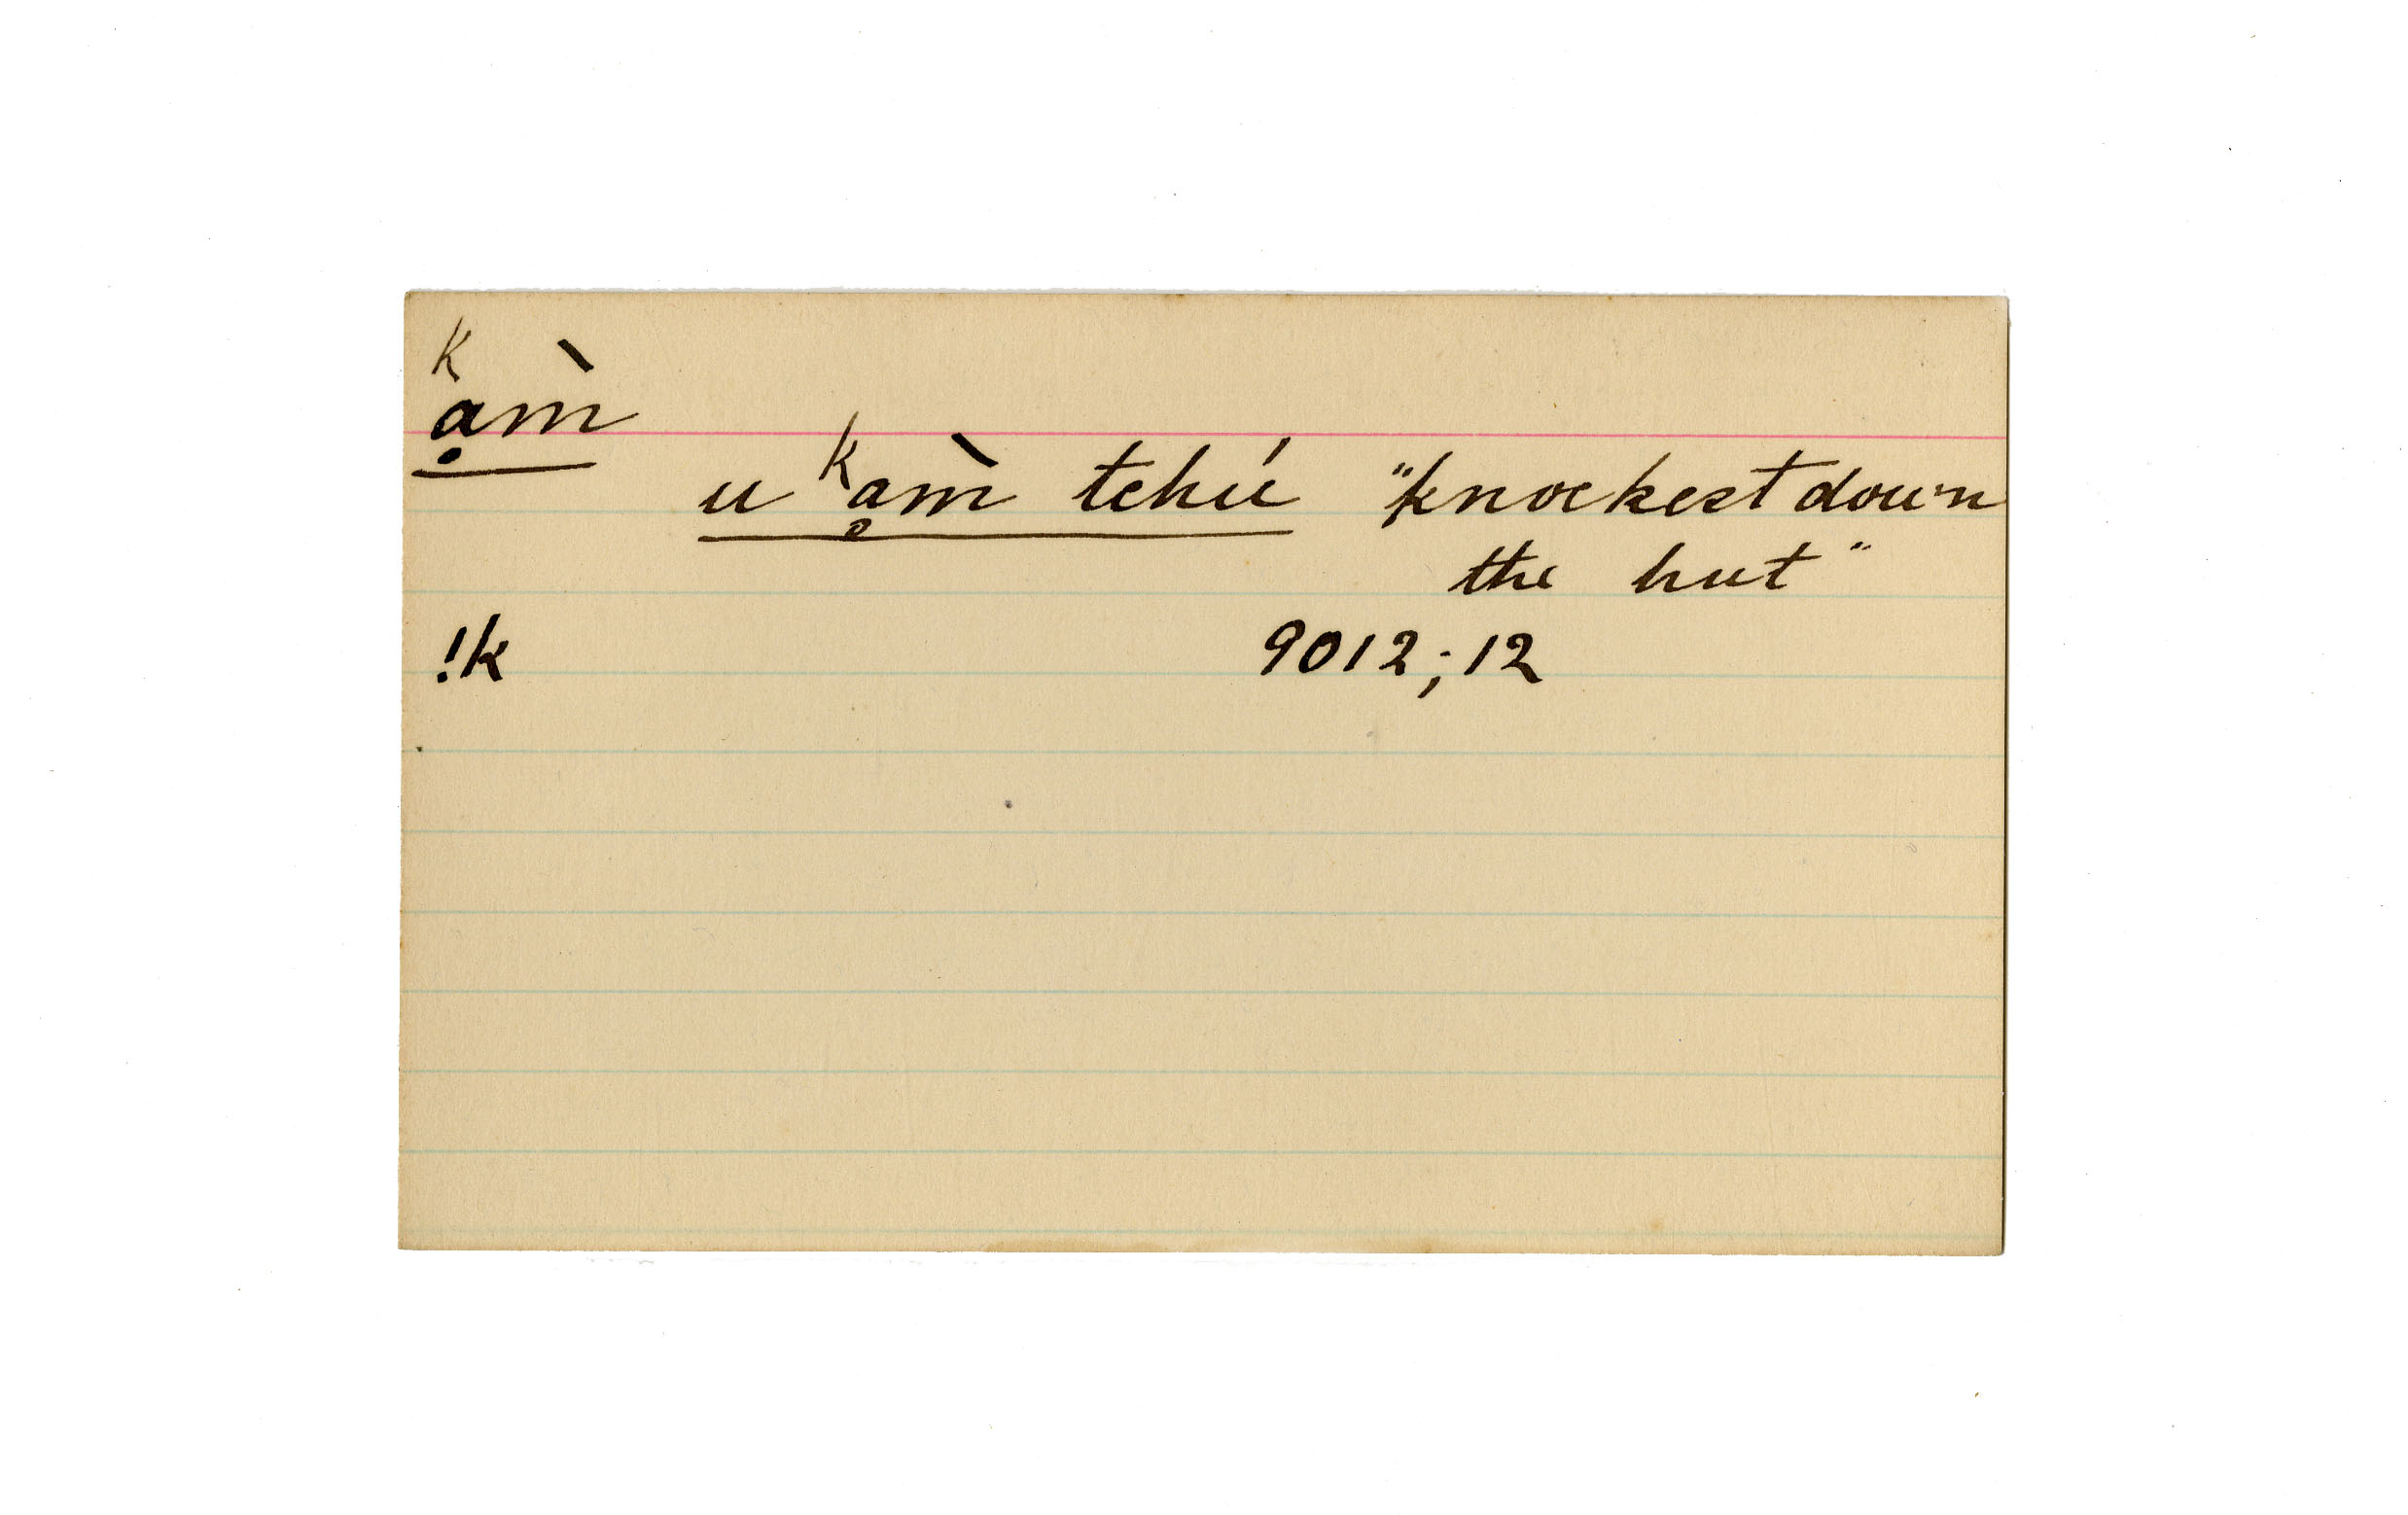 ᵏḁm̀
u ᵏḁm̀ tchú "knockest down
the hut"
!k 9012; 12